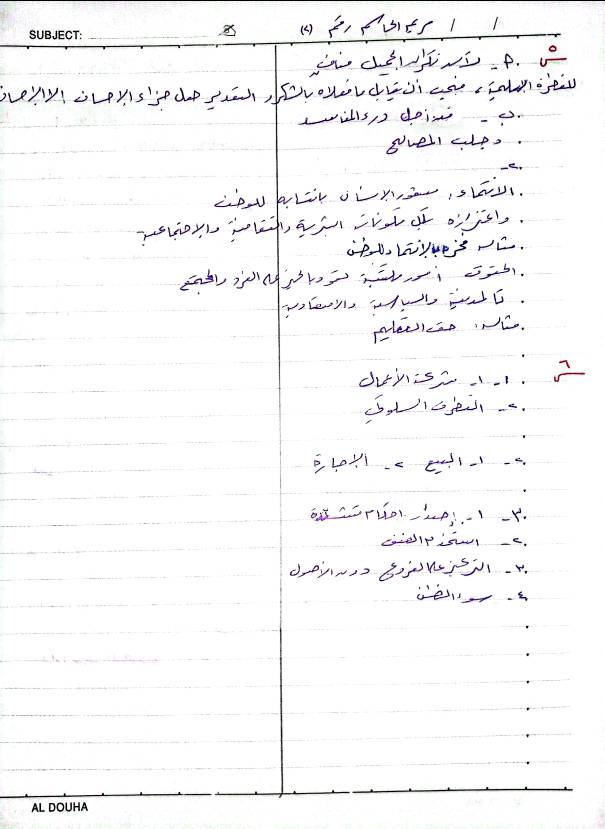 SUBJECT:
/ / مريم الجاسم رقم (٢)
س٥
ج- لأنه نكران الجميل مناف
للفطرة السليمة، فيجب أن يقابل ما فعلاه بالشكر والتقدير هل جزاء الإحسان إلا الإحسان
ب- من أجل درء المفاسد
وجلب المصالح
٢-
الانتماء: شعور الإنسان بانتسابه للوطن
واعتزازه بكل مكوناته البشرية والثقافية والاجتماعية
مثال: فخره بالانتماء للوطن
الحقوق أمور مكتسبة الفرد والمجتمع
كالمدنية والسياسية والاقتصادية
مثال: حق التعليم
س٦
١- ١- شركة الأعمال
٢- التطرف السلوكي
٢- ١- البيع ٢- الإجارة
٣- ١- إصدار احكام متشددة
٢- استخدام العنف
٣- التركيز على الفروع دون الأصول
٤- سوء الظن
AL DOUHA